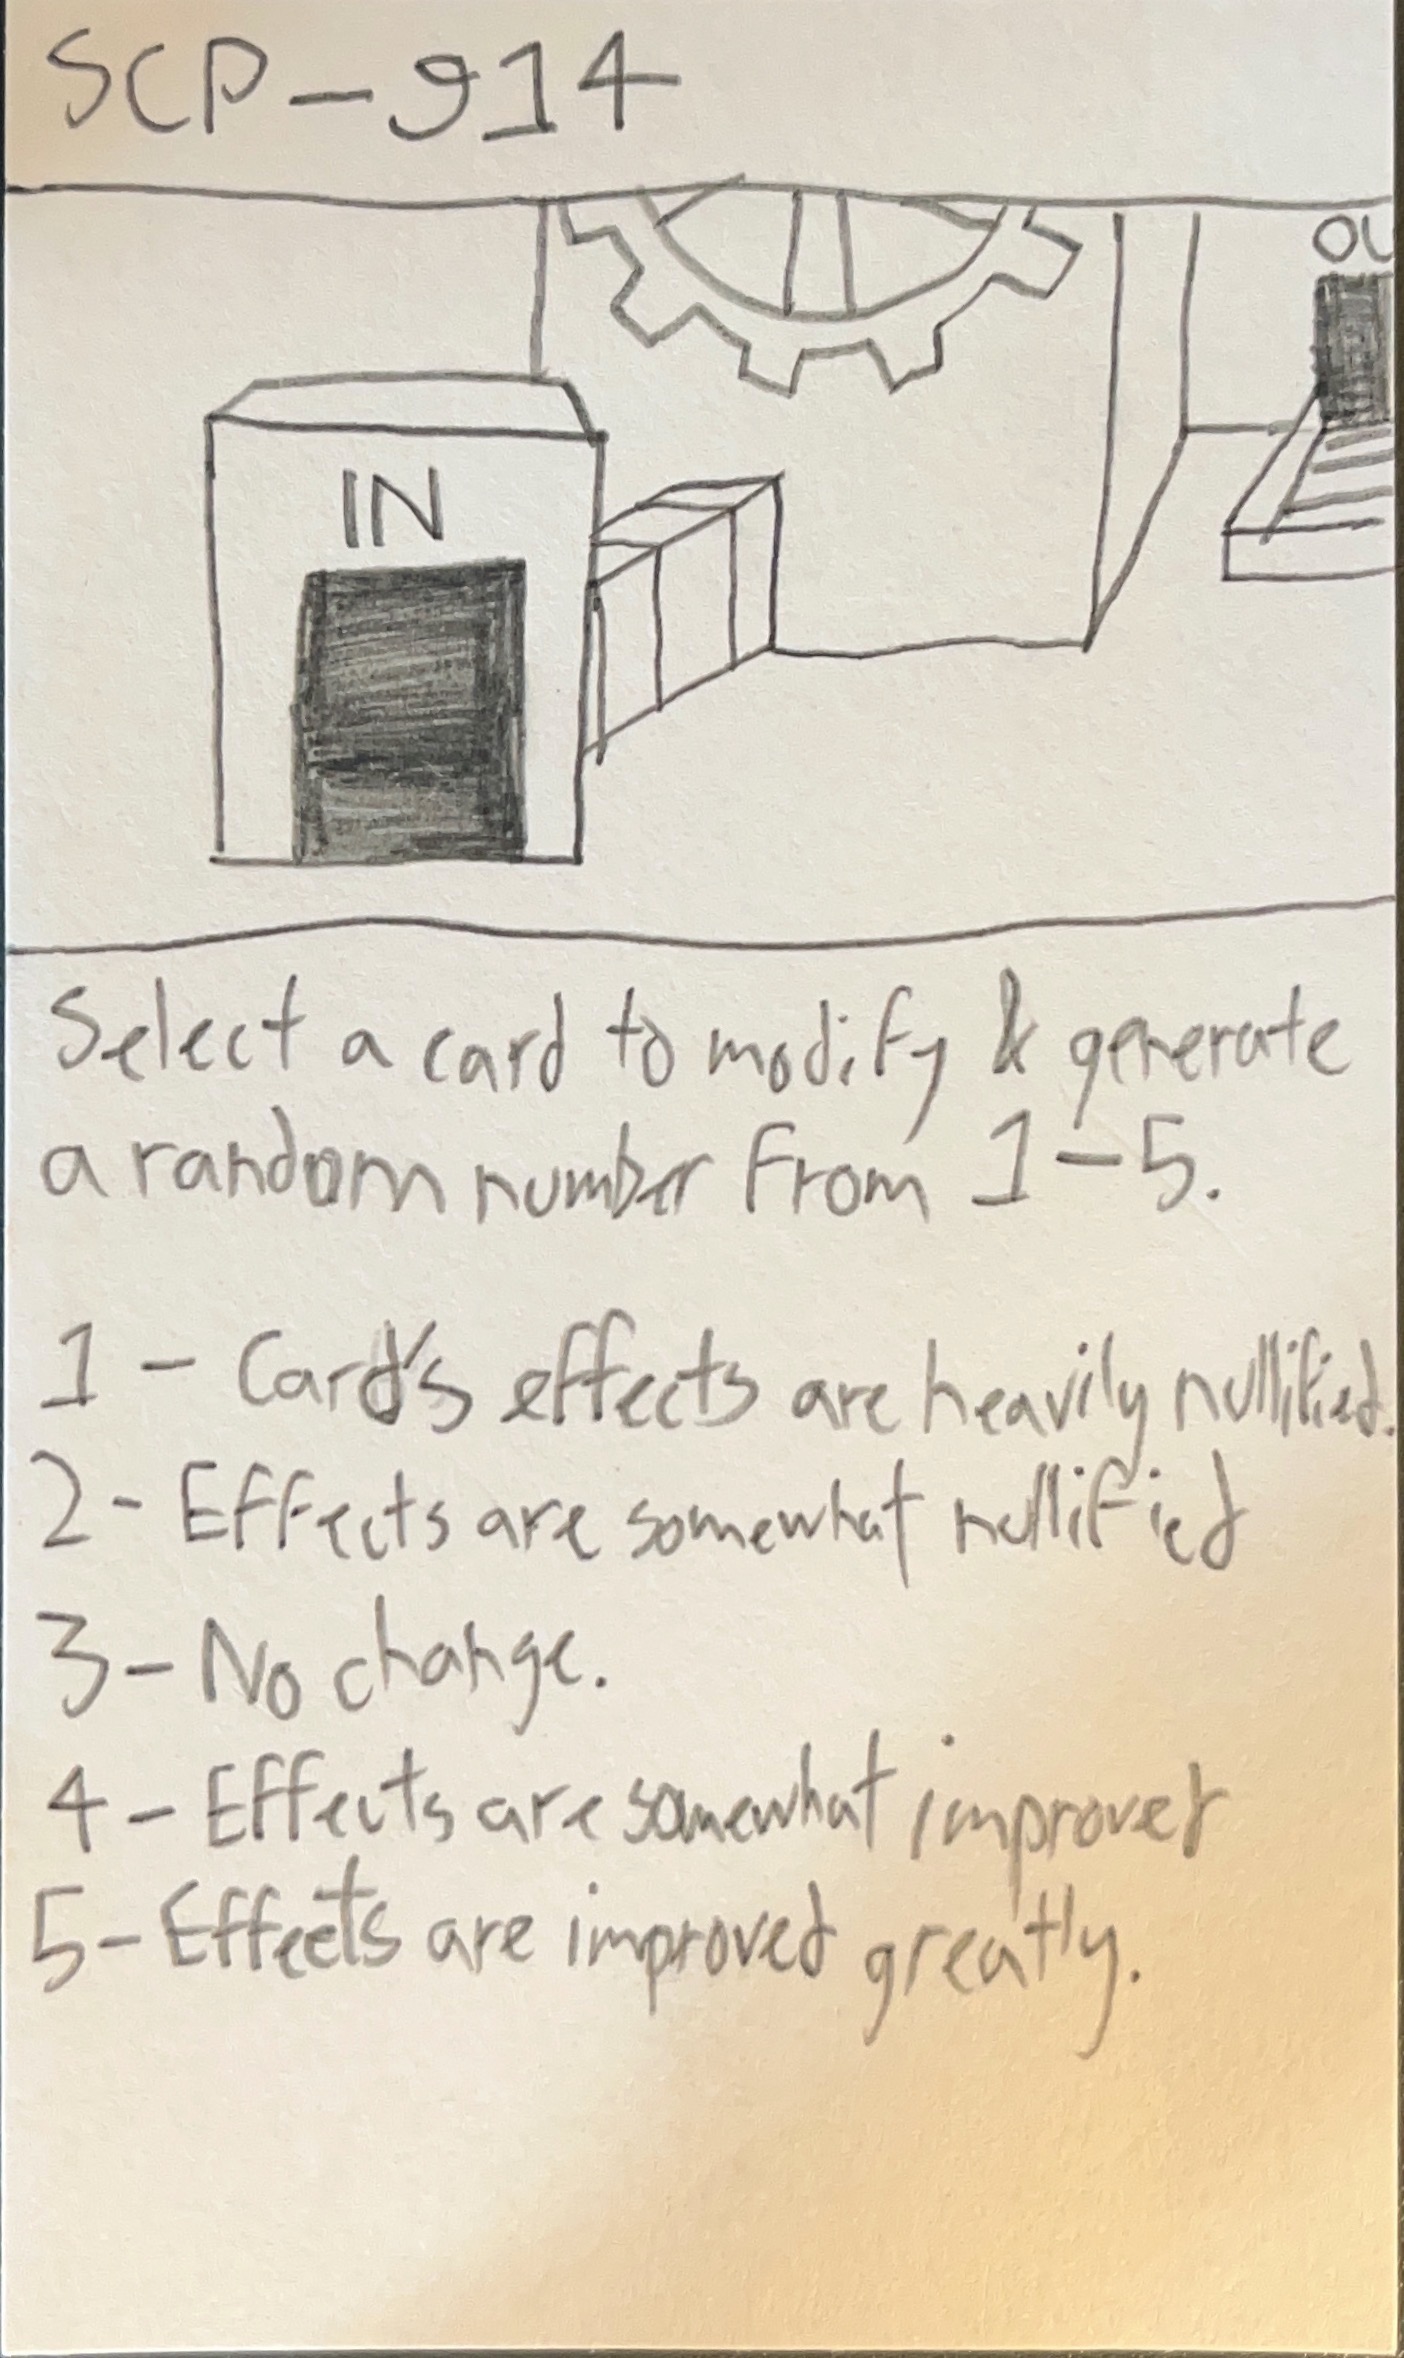 SCP-914
OU
IN
Select a card to modify & generate
a random number from 1-5.
1 - Card's effects are heavily nullified.
2- Effects are somewhat nullified
3- No change.
4- Effects are somewhat improved
5- Effects are improved greatly.